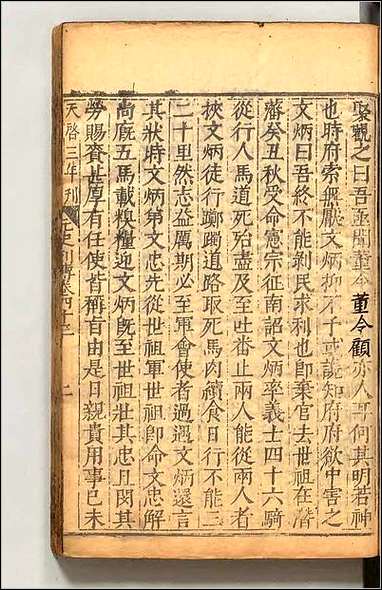 聚觀之曰吾亟聞董令董令顧亦人耳何其明若神
也時府索無厭文炳抑不予或讒知府府欲中害之
文炳曰吾終不能剝民求利也卽棄官去世祖在潛
藩癸丑秋受命憲宗征南詔文炳率義士四十六騎
從行人馬道死殆盡及至吐番止兩人能從兩人者
挾文炳徒行躑躅道路取死馬肉續食日行不能三
二十里然志益厲期必至軍會使者過遇文炳還言
其狀時文炳弟文忠先從世祖軍世祖卽命文忠解
尚廐五馬載糗糧迎文炳旣至世祖壯其忠且閔其
勞賜賚甚厚有任使皆稱旨由是日親貴用事己未
天啓三年刊
元史列傳卷四十三
二